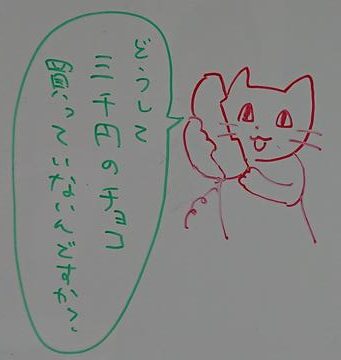 どうして
三千円のチョコ
買っていないんですか